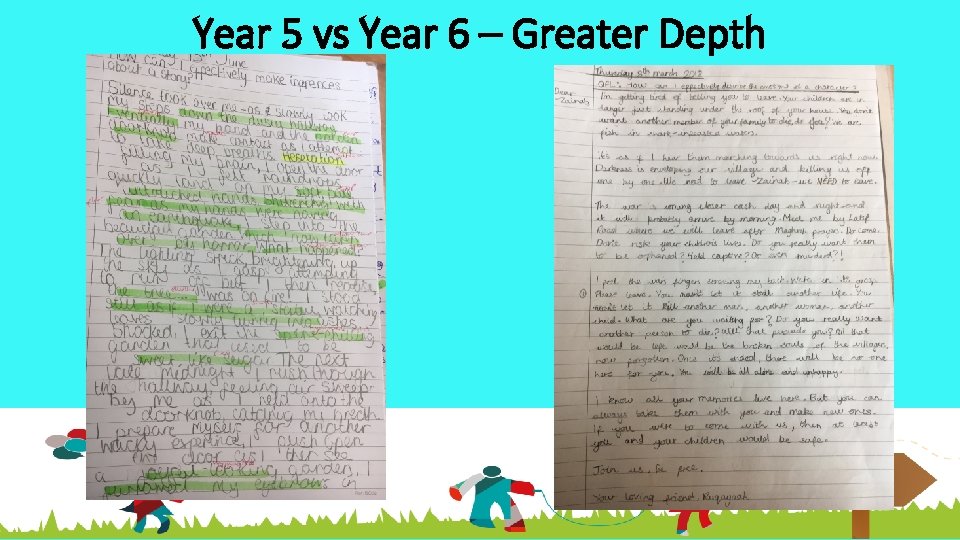 Year 5 vs Year 6 – Greater Depth
June
How can I effectively make inferences
about a story?
Silence took over me as I slowly took
my steps down the dusty hallway
my hand and the golden
doorknob make contact as I attempt
to take deep breaths. Hesitation
filling my brain, I open the door
quick. I gaze up my soft but
untouched hands shivering with
fear as my hands were having
an earthquake, I step into the
beautiful garden.
over. horror, what happened?
The lighting struck brightening up
the sky as I gasp attempting
to run off but I then realise
the tree... It was on fire! I stood
still as if I were a statue watching
leaves slowly turning into ashes. I
shocked, exit the
garden that used to be
sweet like sugar. The next
late midnight I rush through
the hallway feeling air
hey me as I held onto the
doorknob catching my breath.
I prepare myself for another
wacky experience, I push open
my door as I then see
a looking garden, I
my eyebrows in
Thursday 5th March 2012
QFL: How can I effectively describe the emotions of a character?
Dear Zainab,
I'm getting tired of telling you to leave. Your children are in
danger just standing under the roof of your house. You don't
want another member of your family to die, do you? We are
fish in shark-infested waters.
It's as if I hear them marching towards us right now.
Darkness is enveloping our village and killing us off
one by one. We need to leave Zainab - we NEED to leave.
The war is coming closer each day and night and
it will probably arrive by morning. Meet me by Latif
Road where we will leave after Maghrib prayer. Do come.
Don't risk your children's lives. Do you really want them
to be orphaned? Held captive? Or even murdered?!
I feel the war finger
Please leave. You mustn't let it steal another life. You
mustn't let it kill another man, another woman, another
child. What are you waiting for? Do you really want
another person to die? Will that persuade you? All that
would be left would be the broken souls of the villages,
now forgotten. Once it's ended, there will be no one
here for you. You will be all alone and unhappy.
I know all your memories live here. But you can
always take them with you and make new ones.
If you were to come with us, then at least
you and your children would be safe.
Join us, be free.
Your loving friend, Ruqayyah